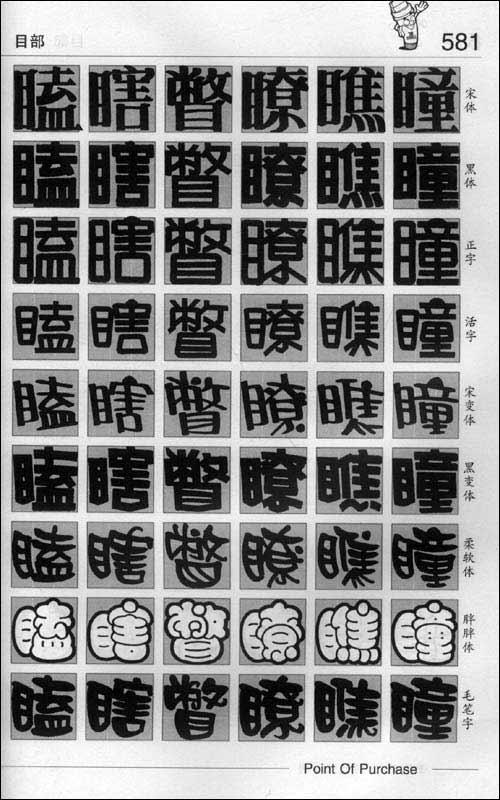 目部
581
瞌 瞎 瞥 瞭 瞧 瞳 宋体
瞌 瞎 瞥 瞭 瞧 瞳 黑体
瞌 瞎 瞥 瞭 瞧 瞳 正字
瞌 瞎 瞥 瞭 瞧 瞳 活字
瞌 瞎 瞥 瞭 瞧 瞳 宋变体
瞌 瞎 瞥 瞭 瞧 瞳 黑变体
瞌 瞎 瞥 瞭 瞧 瞳 柔软体
瞌 瞎 瞥 瞭 瞧 瞳 胖胖体
瞌 瞎 瞥 瞭 瞧 瞳 毛笔字
Point Of Purchase